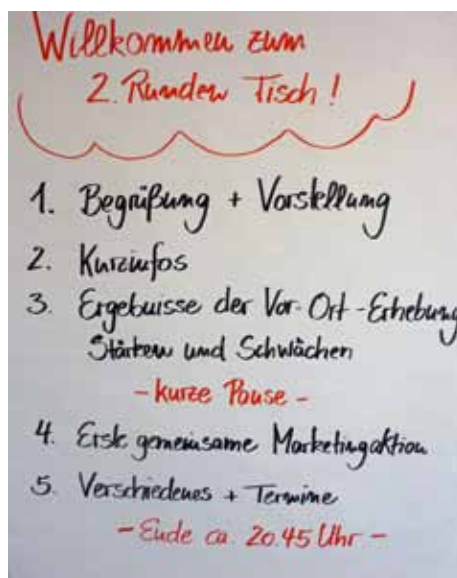 Willkommen zum
2. Runden Tisch!
1. Begrüßung + Vorstellung
2. Kurzinfos
3. Ergebnisse der Vor-Ort-Erhebung
Stärken und Schwächen
- kurze Pause -
4. Erste gemeinsame Marketingaktion
5. Verschiedenes + Termine
- Ende ca. 20.45 Uhr -